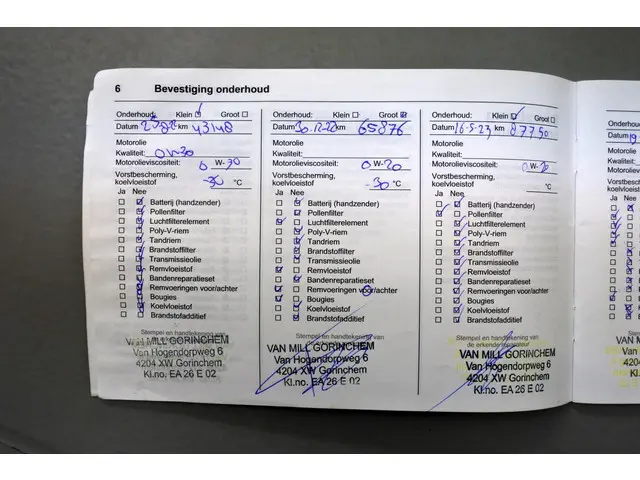 6 Bevestiging onderhoud
Onderhoud: Klein Groot
Datum km 43148
Motorolie
Kwaliteit: 0W-30
Motorolieviscositeit: 0 W-30
Vorstbescherming,
koelvloeistof -30 °C
Ja Nee
Batterij (handzender)
Pollenfilter
Luchtfilterelement
Poly-V-riem
Tandriem
Brandstoffilter
Transmissieolie
Remvloeistof
Bandenreparatieset
Remvoeringen voor/achter
Bougies
Koelvloeistof
Brandstofadditief
Stempel en handtekening van
VAN MILL GORINCHEM
Van Hogendorpweg 6
4204 XW Gorinchem
Kl.no. EA 26 E 02
Onderhoud: Klein Groot
Datum 30-12-22 km 65876
Motorolie
Kwaliteit:
Motorolieviscositeit: 0 W-20
Vorstbescherming,
koelvloeistof -30 °C
Ja Nee
Batterij (handzender)
Pollenfilter
Luchtfilterelement
Poly-V-riem
Tandriem
Brandstoffilter
Transmissieolie
Remvloeistof
Bandenreparatieset
Remvoeringen voor/achter
Bougies
Koelvloeistof
Brandstofadditief
Stempel en handtekening van
VAN MILL GORINCHEM
Van Hogendorpweg 6
4204 XW Gorinchem
Kl.no. EA 26 E 02
Onderhoud: Klein Groot
Datum 16-5-23 km 87750
Motorolie
Kwaliteit:
Motorolieviscositeit: 0 W-20
Vorstbescherming,
koelvloeistof °C
Ja Nee
Batterij (handzender)
Pollenfilter
Luchtfilterelement
Poly-V-riem
Tandriem
Brandstoffilter
Transmissieolie
Remvloeistof
Bandenreparatieset
Remvoeringen voor/achter
Bougies
Koelvloeistof
Brandstofadditief
Stempel en handtekening van
de erkende reparateur
VAN MILL GORINCHEM
Van Hogendorpweg 6
4204 XW Gorinchem
Kl.no. EA 26 E 02
Onderhoud
Datum 19
Motorolie
Kwaliteit:
Motorolie
Vorstbesc
koelvloeis
Ja Nee